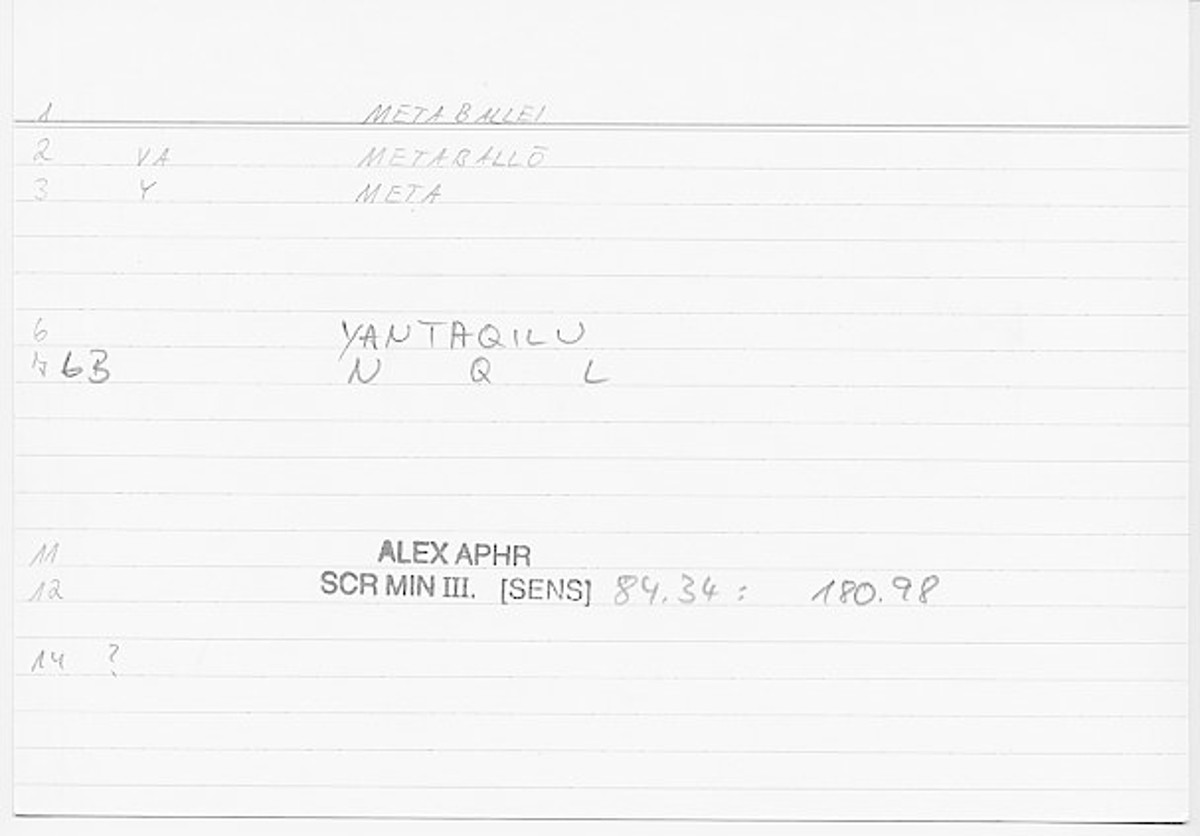 1 METABALLEI
2 VA METABALLŌ
3 Y META
6 YANTAQILU
7 6B N Q L
11 ALEX APHR
12 SCR MIN III. [SENS] 84.34 : 180.98
14 ?